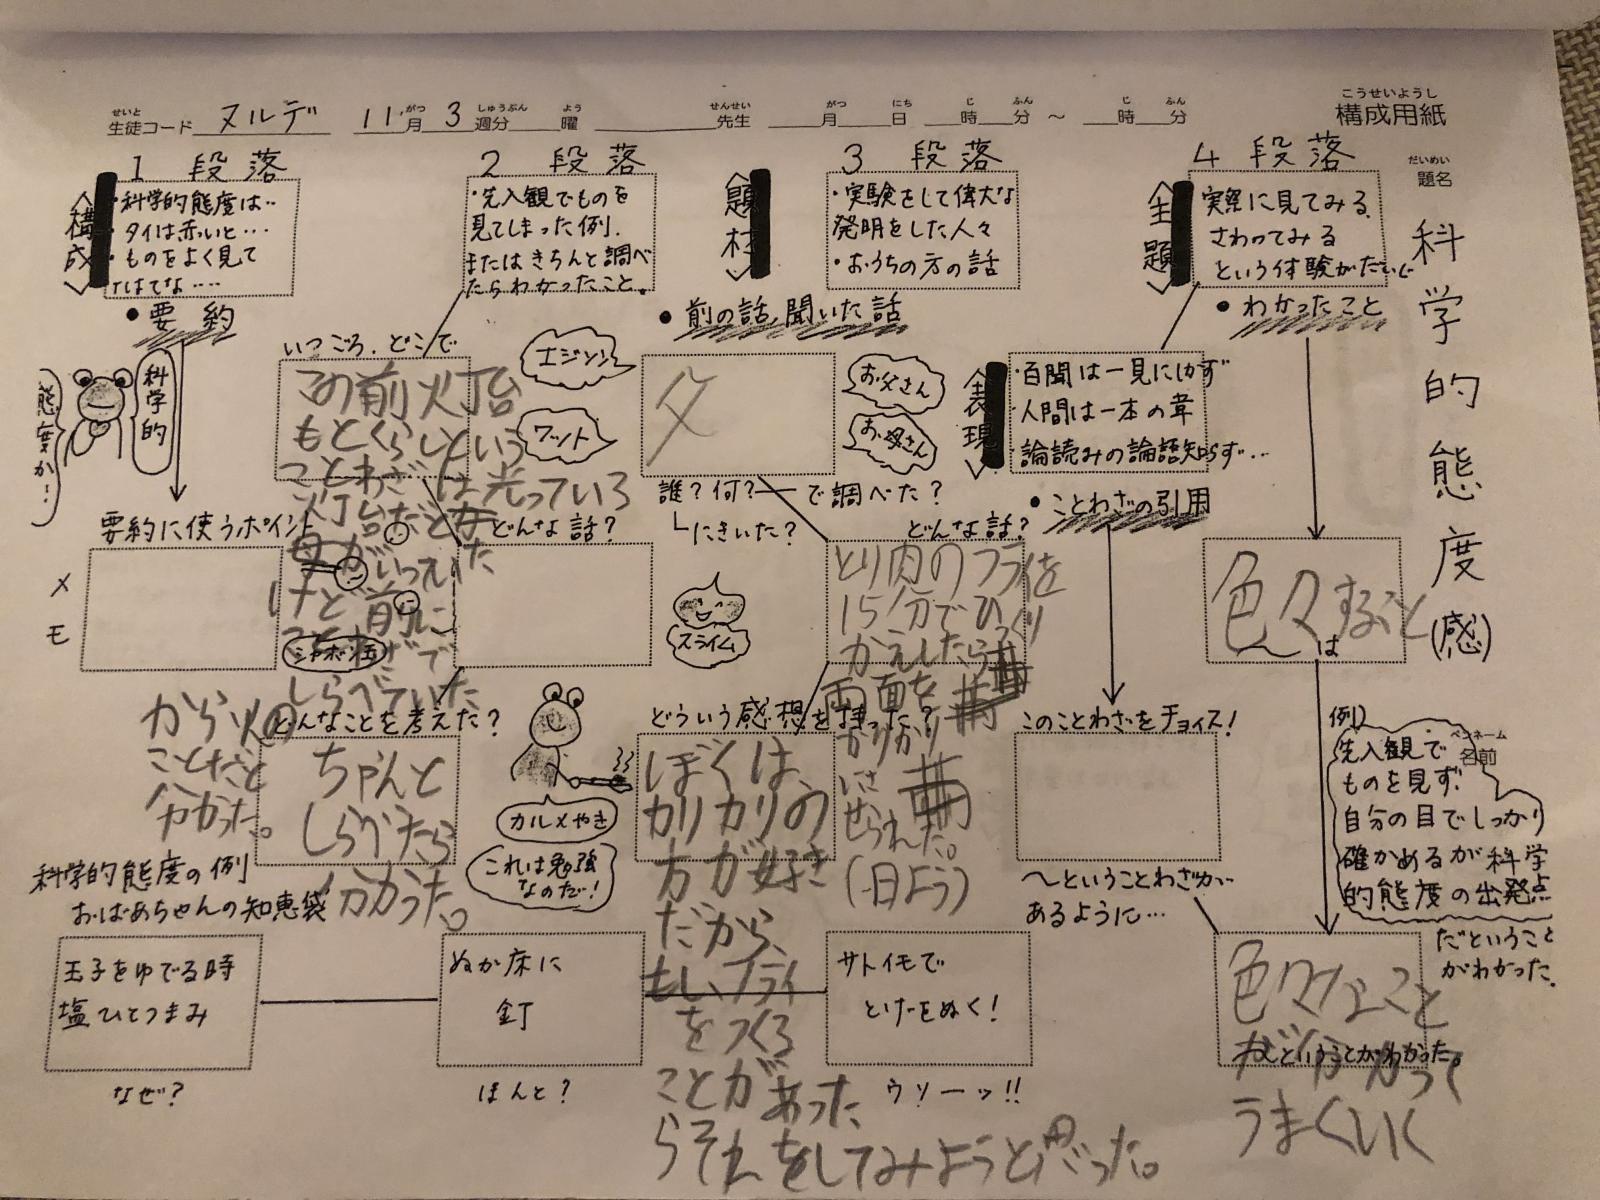 せいと がつ しゅうぶん よう せんせい がつ にち じ ふん じ ふん
生徒コード ヌルデ 11月 3週分 曜 先生 月 日 時 分 ～ 時 分
こうせいようし
構成用紙
だいめい
題名
科学的態度(感)
ペンネーム
名前
1 段落
〈構成〉
・科学的態度は‥
・タイは赤いと…
・ものをよく見て
いはてな‥‥
●要約
科学的
態度か！
要約に使うポイント
メモ
2 段落
・先入観でものを
見てしまった例.
またはきちんと調べ
たらわかったこと。
いつごろ、どこで
この前火丁台
もとくらしという
ことわざは光っている
灯台だと
母がいっていた
けど前に
ことわざで
しらべていた
から火の
ことだと
分かった。
シャボン玉
エジソン
ワット
どんな話?
どんなことを考えた?
ちゃんと
しらべたら
分かった。
カルメやき
これは勉強
なのだ!
〈題材〉
3 段落
・実験をして偉大な
発明をした人々
・おうちの方の話
●前の話、聞いた話
父
お父さん
お母さん
誰?何?―で調べた?
にきいた?
スライム
どんな話?
とり肉のフライを
15分でひっくり
かえしたら
両面を
かりかり
にさ
せられた。
(日よう)
どういう感想を持った?
ぼくは、
カリカリの
方が好き
だから、
もしフライ
をつくる
ことがあった
らそれをしてみようと思った。
〈主題〉
4 段落
実際に見てみる.
さわってみる
という体験がだいじ
●わかったこと
〈表現〉
・百聞は一見にしかず
・人間は一本の葦
・論語読みの論語知らず…
●ことわざの引用
このことわざをチョイス!
～ということわざが‥
あるように…
色々すること
人は
例)
先入観で
ものを見ず.
自分の目でしっかり
確かめるが科学
的態度の出発点
だということ
がわかった.
色々なこと
が分かって
うまくいく
ということがわかった。
科学的態度の例
おばあちゃんの知恵袋
玉子をゆでる時
塩ひとつまみ
なぜ?
ぬか床に
釘
ほんと?
サトイモで
とげをぬく!
ウソーッ!!